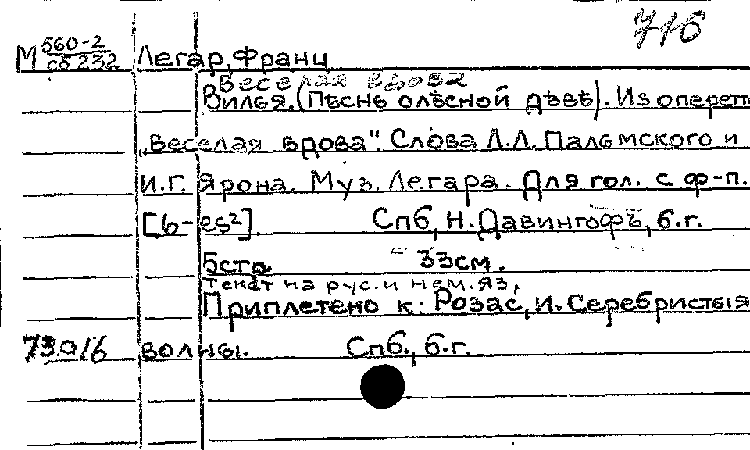 716
М 560-2 Легар, Франц
сб 232
Веселая вдова
Вилья. (Пѣснь о лѣсной дѣвѣ). Из оперетт
„Веселая вдова". Слова Л.Л. Пальмского и
И.Г. Ярона. Муз. Легара. Для гол. с ф-п.
[b-es²]. Спб, Н. Давингофъ, б.г.
5стр. 33см.
Текст на рус. и нем. яз.
Приплетено к: Розас, И. Серебристыя
73016 волны. Спб., б.г.